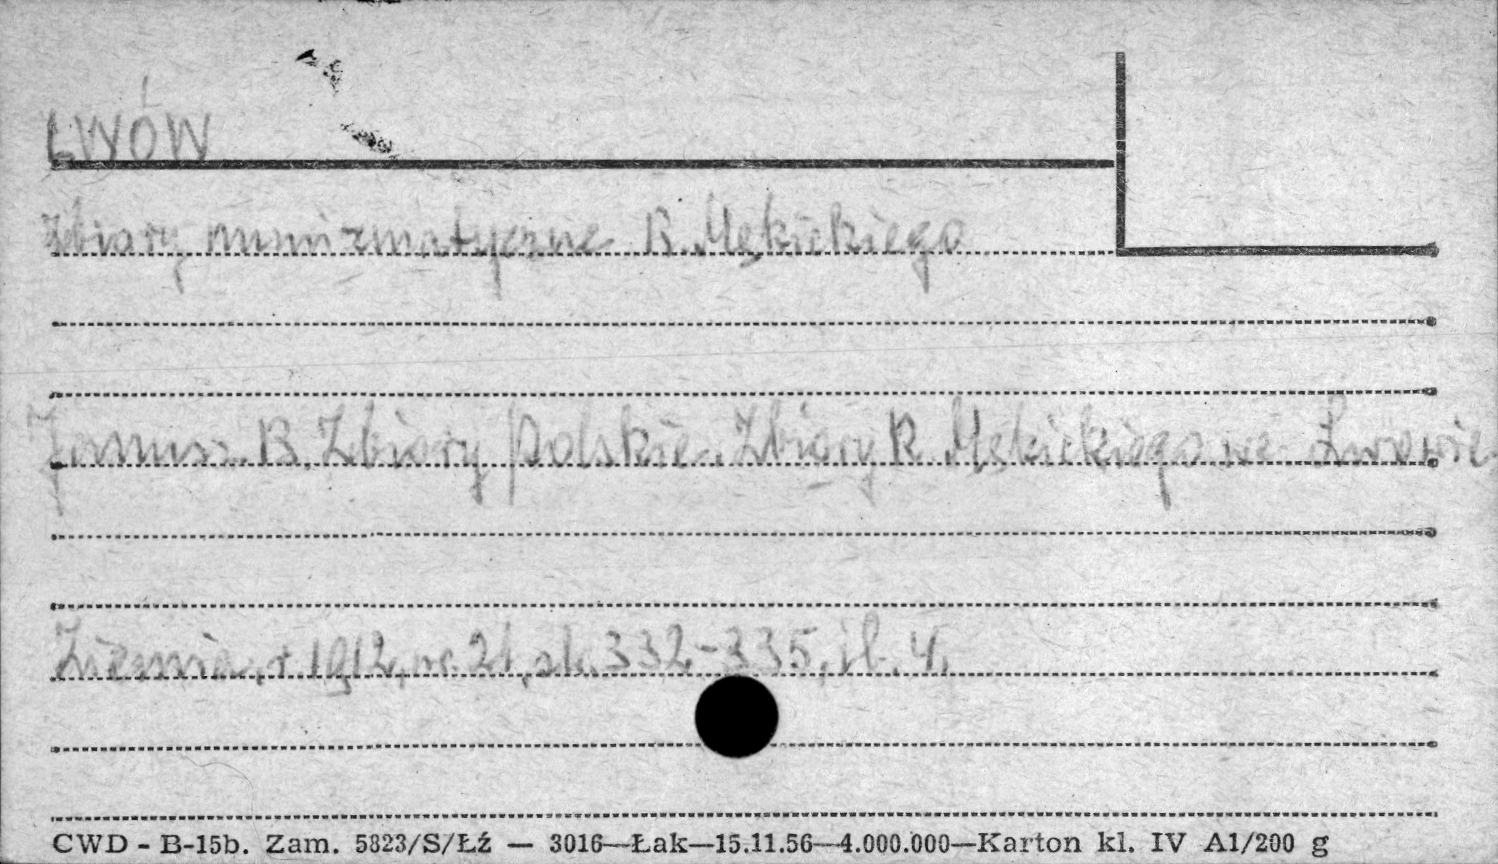 LWÓW
Zbiory numizmatyczne R. Mękickiego
Janusz B. Zbiory polskie. Zbiory R. Mękickiego we Lwowie.
Ziemia, r. 1912, nr. 21, str. 332-335, il. 4.
CWD - B-15b. Zam. 5823/S/Łź — 3016—Łak—15.11.56—4.000.000—Karton kl. IV A1/200 g